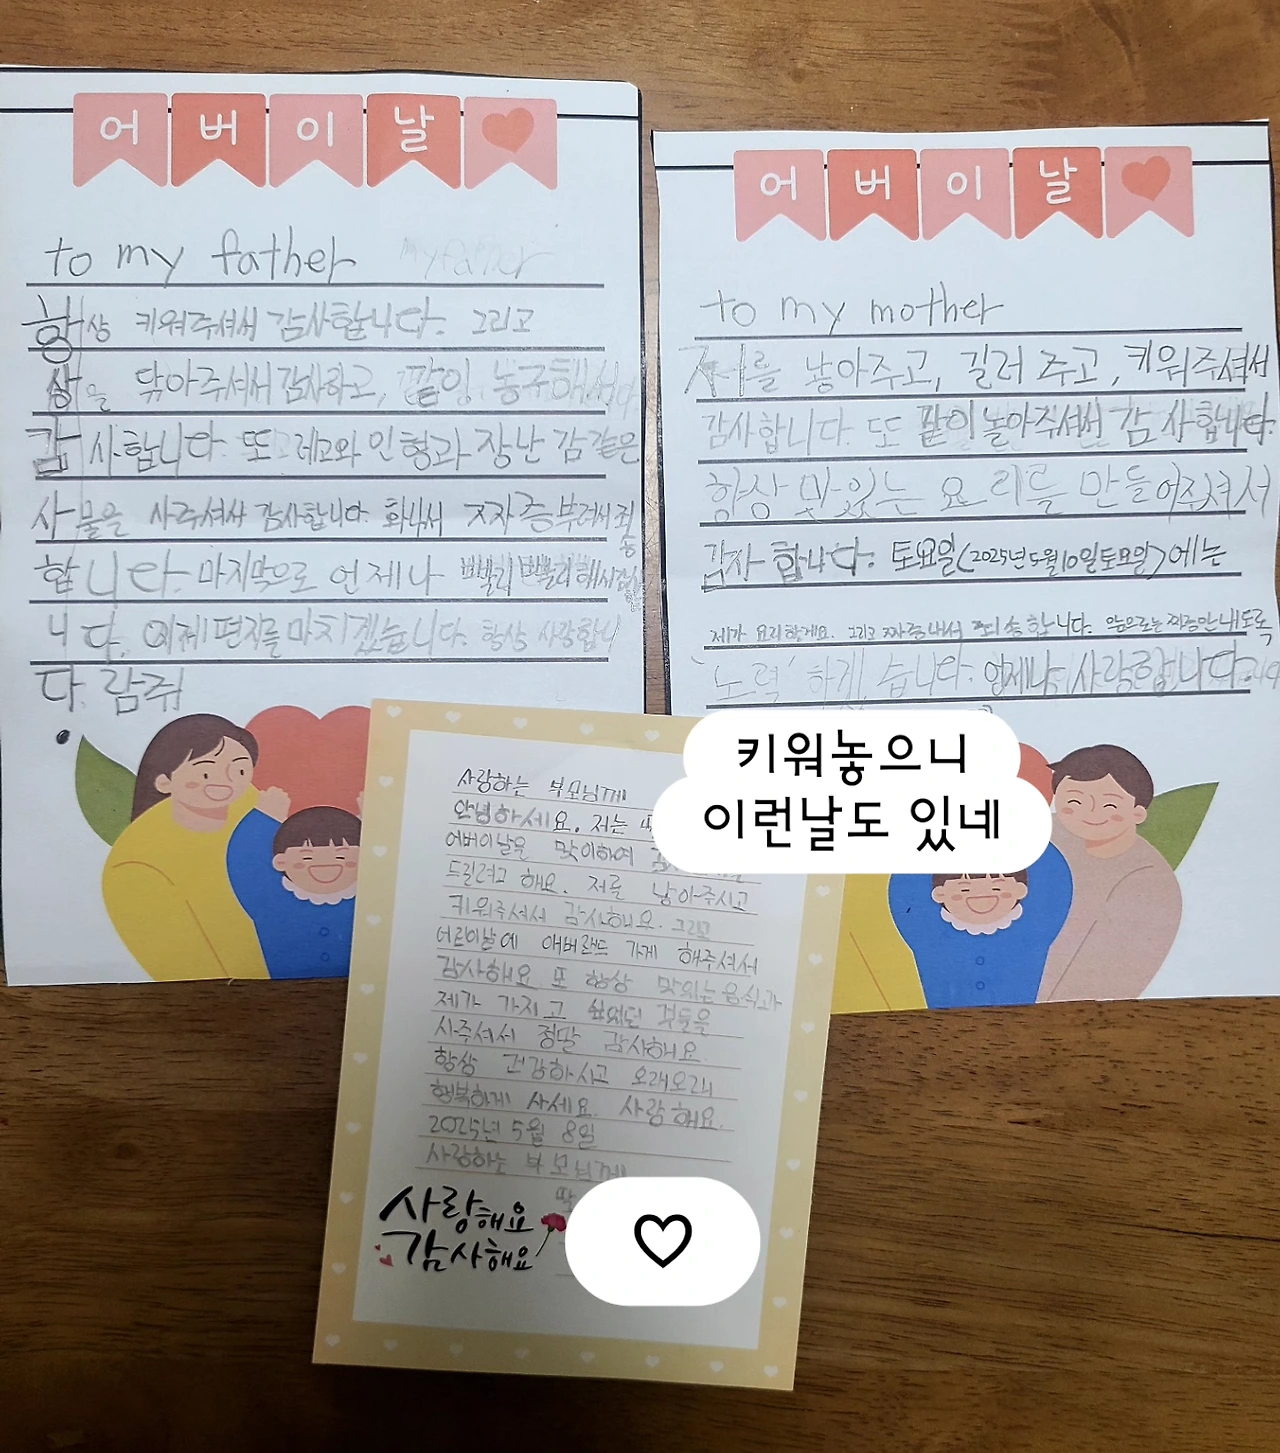 어버이날
to my father my father
항상 키워주셔서 감사합니다. 그리고
상을 닦아주셔서 감사하고, 같이 농구해서
감사합니다. 또 레고와 인형과 장난감 같은
사물을 사주셔서 감사합니다. 화나서 짜증부려서 죄송
합니다. 마지막으로 언제나
니다. 이제 편지를 마치겠습니다. 항상 사랑합니
다. 람쥐
어버이날
to my mother
저를 낳아주고, 길러 주고, 키워주셔서
감사합니다. 또 같이 놀아주셔서 감사합니다.
항상 맛있는 요리를 만들어주셔서
감사합니다. 토요일(2025년 5월 10일 토요일)에는
제가 요리할게요. 그리고 짜증내서 죄송합니다. 앞으로는 짜증 안내도록
'노력' 하겠습니다. 언제나 사랑합니다.
키워놓으니
이런날도 있네
사랑하는 부모님께
안녕하세요. 저는
어버이날을 맞이하여
드릴려고 해요. 저를 낳아주시고
키워주셔서 감사해요. 그리고
어린이날에 애버랜드 가게 해주셔서
감사해요. 또 항상 맛있는 음식과
제가 가지고 싶었던 것들을
사주셔서 정말 감사해요.
항상 건강하시고 오래오래
행복하게 사세요. 사랑해요.
2025년 5월 8일
사랑하는 부모님께
사랑해요
감사해요